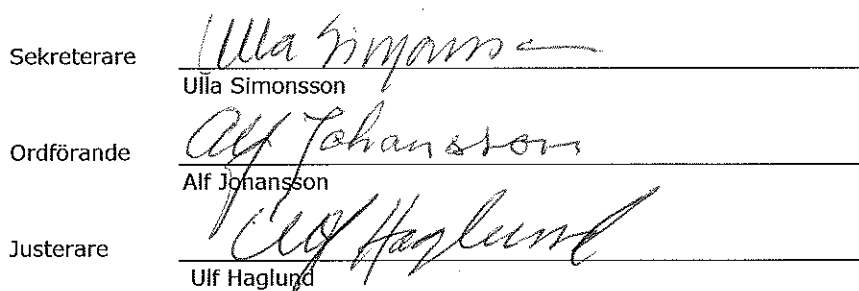 Sekreterare Ulla Simonsson
Ulla Simonsson
Ordförande Alf Johansson
Alf Johansson
Justerare Ulf Haglund
Ulf Haglund